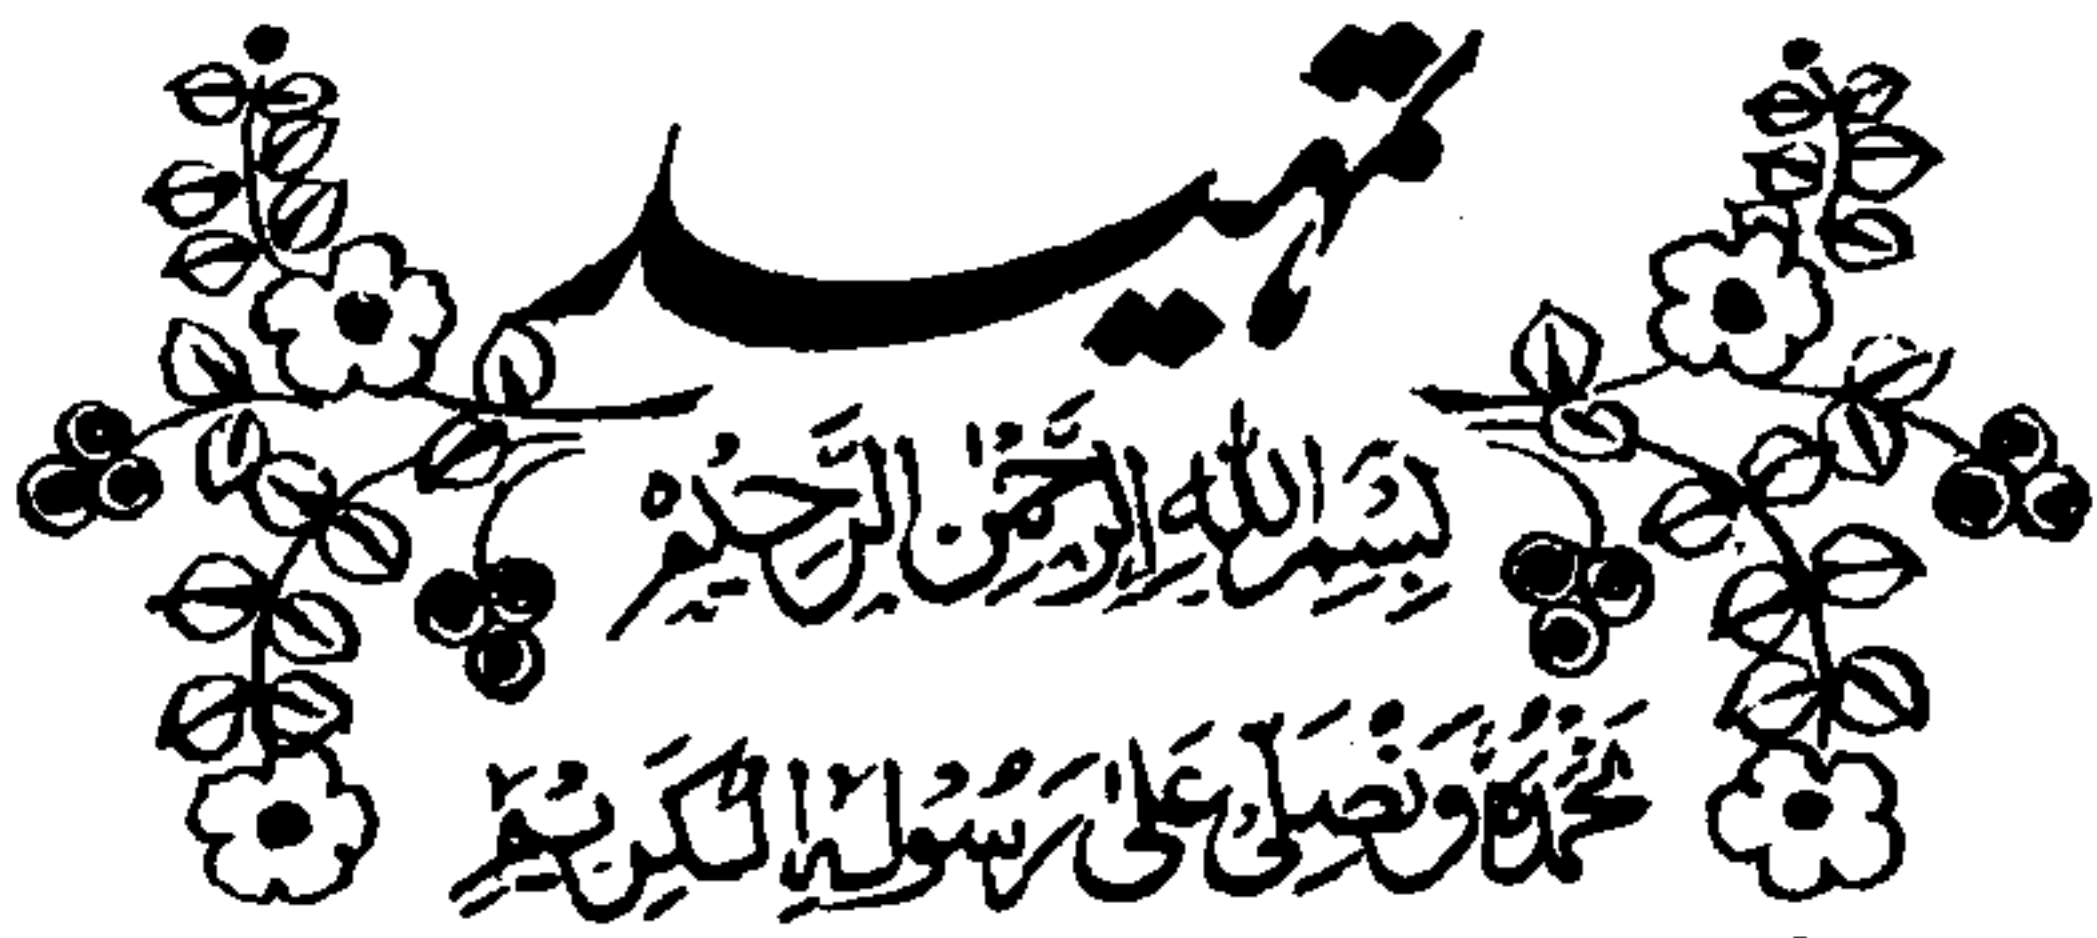 تمہید
بِسْمِ اللّٰهِ الرَّحْمٰنِ الرَّحِيْمِ
نَحْمَدُهٗ وَنُصَلِّیْ عَلٰی رَسُوْلِهِ الْكَرِیْمِ